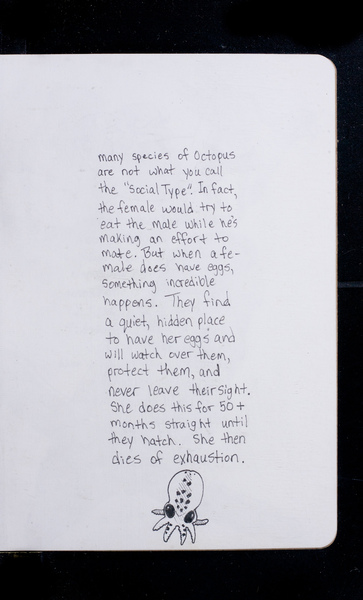 many species of Octopus
are not what you call
the "Social Type". In fact,
the female would try to
eat the male while he's
making an effort to
mate. But when a fe-
male does have eggs,
something incredible
happens. They find
a quiet, hidden place
to have her eggs and
will watch over them,
protect them, and
never leave their sight.
She does this for 50+
months straight until
they hatch. She then
dies of exhaustion.